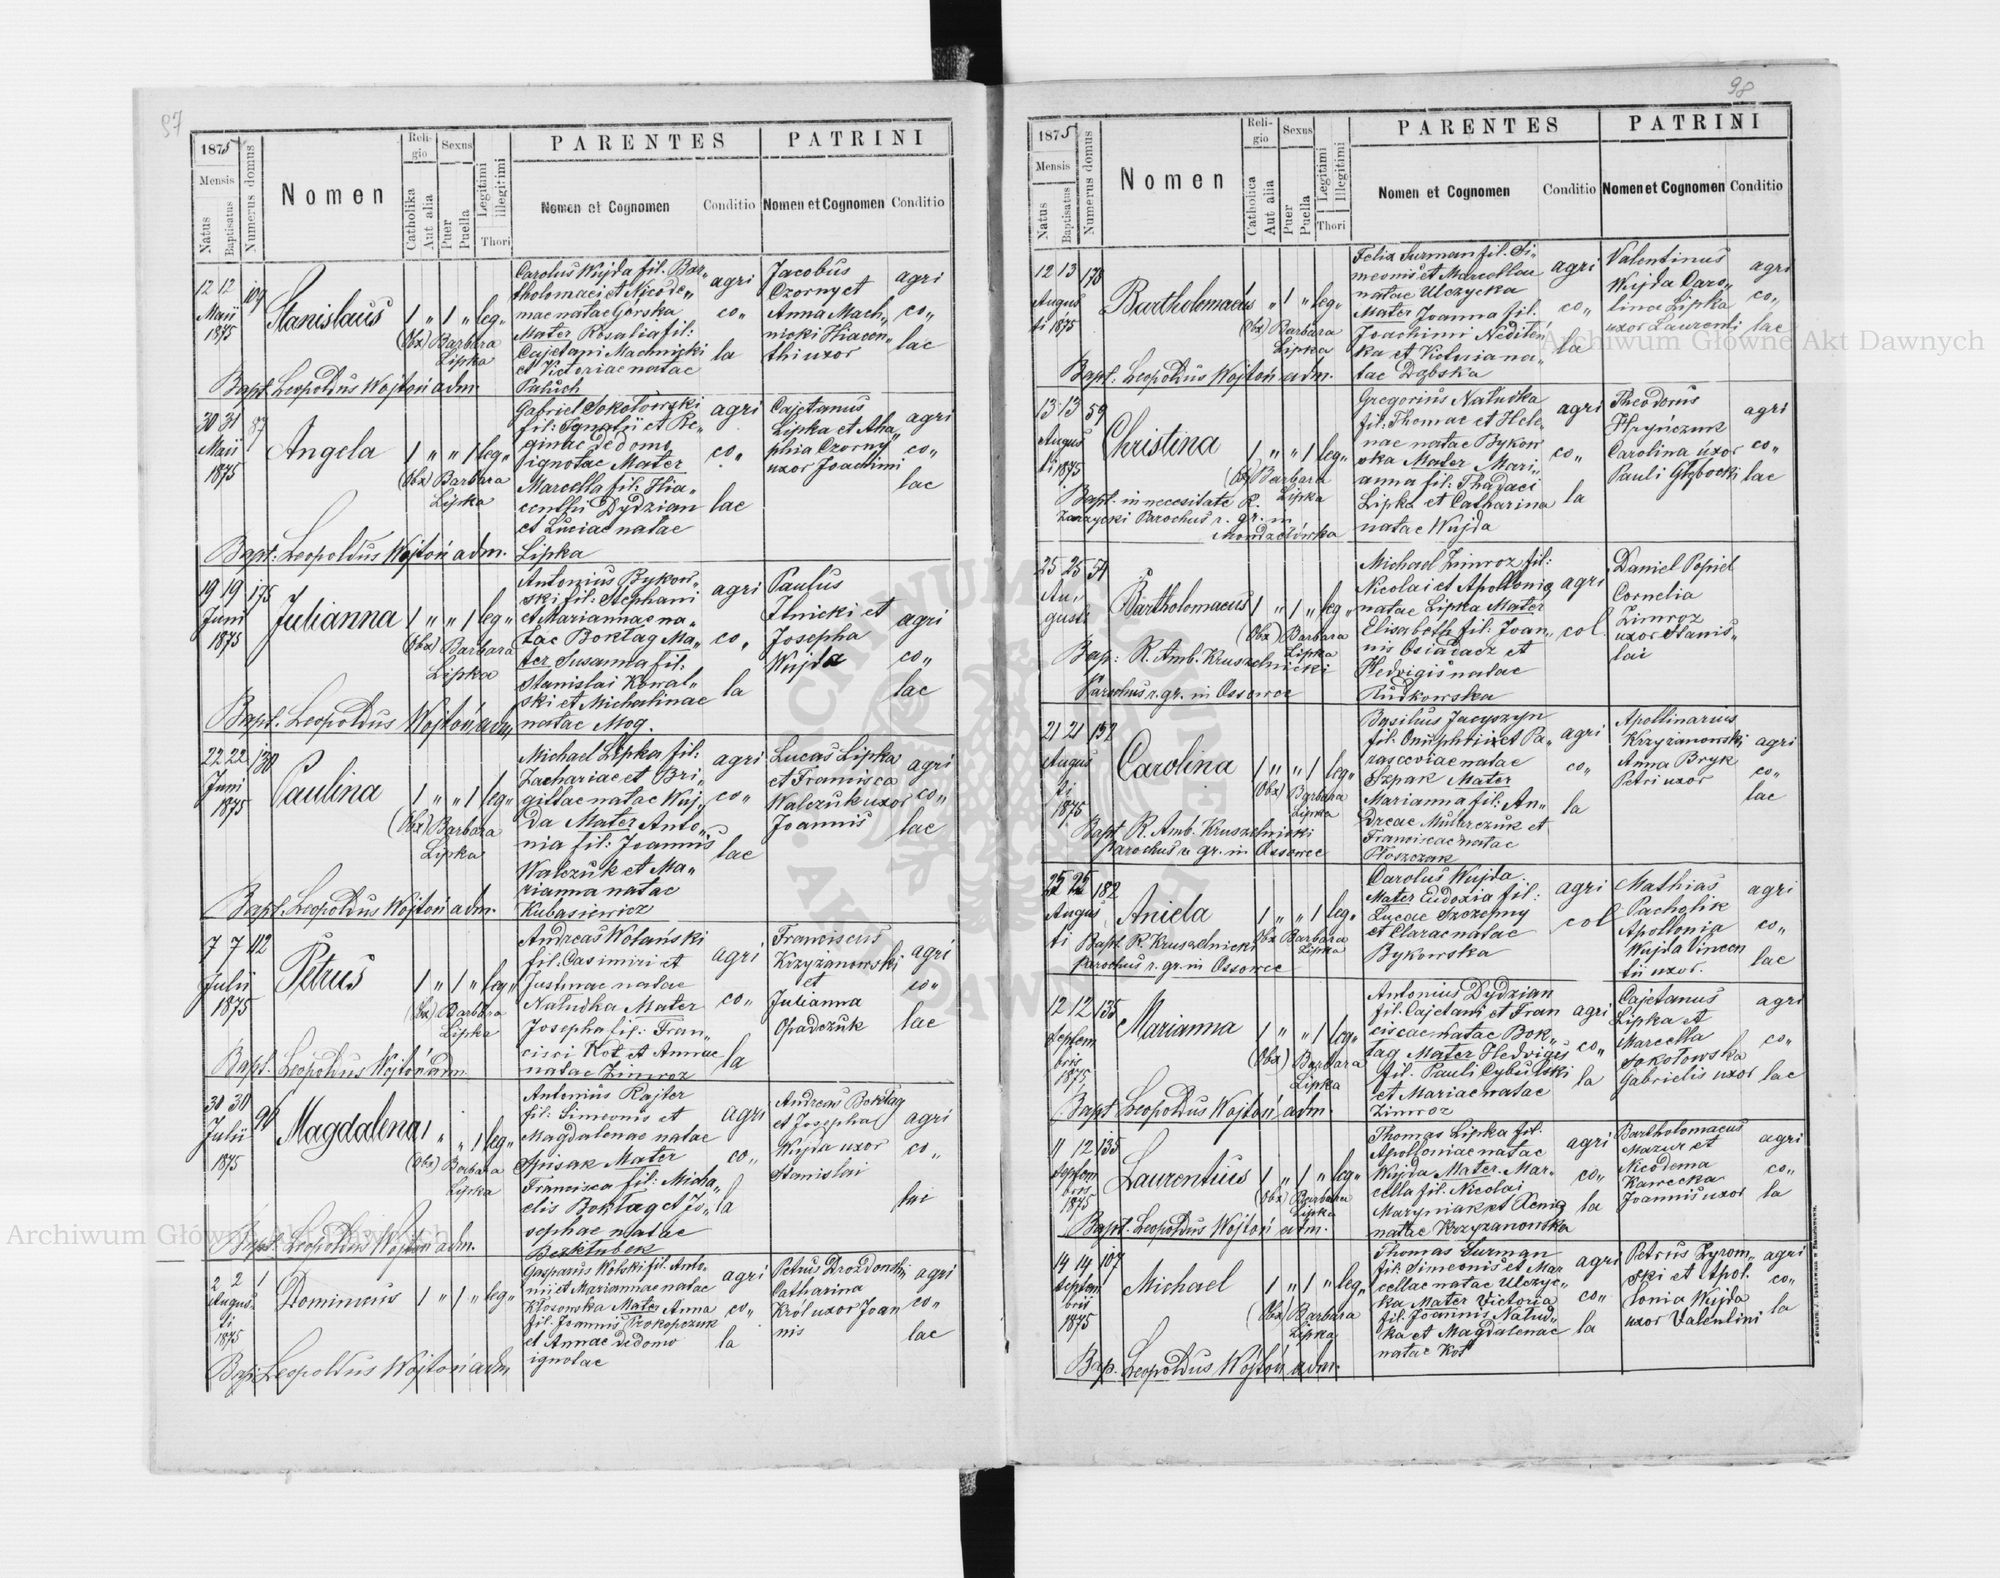 97
1875
Mensis
Natus
Baptisatus
Numerus domus
Nomen
Religio
Catholika
Aut alia
Sexus
Puer
Puella
Legitimi
illegitimi
Thori
PARENTES
Nomen et Cognomen
Conditio
PATRINI
Nomen et Cognomen
Conditio
12 12
Maii
1875
Stanislaus
1 „ 1 „ leg„
(Obx) Barbara
Lipka
Carolus Wujda fil. Bar„
tholomaei et Nicode„
mae natae Gorska
Mater Rosalia fil:
Cajetani Machnicki
et Victoriae natae
Paluch
agri
co„
la
Jacobus
Czorny et
Anna Mach„
nicki Hiacen„
thi uxor
agri
co„
lae
Bapt. Leopoldus Wojtoń adm.
30 31
Maii
1875
87
Angela
1 „ „ 1 leg„
(Obx) Barbara
Lipka
Gabriel Sokołowski
fil: Ignatii et Re„
ginae de domo
ignotae Mater
Marcella fil: Hia„
centhi Dydzian
et Luciae natae
Lipka
agri
co„
lae
Cajetanus
Lipka et Aha„
phia Czorny
uxor Joachimi
agri
co„
lae
Bapt: Leopoldus Wojtoń adm.
19 19
Juni
1875
175
Julianna
1 „ „ 1 leg„
(Obx) Barbara
Lipka
Antonius Bykow„
ski fil: Stephani
et Mariannae na„
tae Boktag Ma„
ter Susanna fil:
Stanislai Kowal„
ski et Michalinae
natae Mog.
agri
co„
la
Paulus
Ilnicki et
Josepha
Wujda
agri
co„
lae
Bapt. Leopoldus Wojtoń adm.
22 22
Juni
1875
130
Paulina
1 „ „ 1 leg„
(Obx) Barbara
Lipka
Michael Lipka fil:
Zachariae et Bri„
gittae natae Wuj„
da Mater Anto„
nia fil: Joannis
Walczuk et Ma„
rianna natae
Kubasiewicz
agri
co„
lae
Lucas Lipka
et Francisca
Walczuk uxor
Joannis
agri
co„
lae
Bapt. Leopoldus Wojtoń adm.
7 7 112
Julii
1875
Petrus
1 „ 1 „ leg„
(Obx) Barbara
Lipka
Andreas Wolański
fil. Casimiri et
Justinae natae
Natudka Mater
Josepha fil: Fran„
cisci Kot et Annae
natae Zimroz
agri
co„
la
Franciscus
Krzyzanowski
et
Julianna
Opadczuk
agri
co„
lae
Bapt. Leopoldus Wojtoń adm.
30 30
Julii
1875
96
Magdalena
1 „ „ 1 leg„
(Obx) Barbara
Lipka
Antonius Rajter
fil: Simeonis et
Magdalenae natae
Spisak Mater
Francisca fil: Micha„
elis Boktag et Jo„
sephae natae
Bezktubek
agri
co„
la
Andreas Boktag
et Josepha
Wujda uxor
Stanislai
agri
co„
lai
Bapt. Leopoldus Wojtoń adm.
2 2 1
Augus„
ti
1875
Dominicus
1 „ 1 „ leg„
Gasparus Wolski fil. Anto„
nii et Mariannae natae
Kłosowska Mater Anna
fil. Joannis Prokopczuk
et Annae de domo
ignotae
agri
co„
la
Petrus Drozdowski
Catharina
Król uxor Joan
nis
agri
co„
lae
Bap. Leopoldus Wojtoń adm
98
1875
Mensis
Natus
Baptisatus
Numerus domus
Nomen
Religio
Catholica
Aut alia
Sexus
Puer
Puella
Legitimi
Illegitimi
Thori
PARENTES
Nomen et Cognomen
Conditio
PATRINI
Nomen et Cognomen
Conditio
12 13 178
Augus
ti 1875
Bartholomaeus
„ 1 „ leg„
(Obx) Barbara
Lipka
Felix Surman fil. Si„
meonis et Marcellae
natae Ulczycka
Mater Joanna fil.
Joachimi
ka et Victoria na„
tae Dąbska
agri
co„
la
Valentinus
Wujda Caro„
lina Lipka
uxor Laurenti
agri
co„
lae
Bapt. Leopoldus Wojtoń adm.
13 13 59
Augus
ti 1875
Christina
1 „ „ 1 leg„
(Obx) Barbara
Lipka
Gregorius Natudka
fil: Thomae et Hele„
nae natae Bykow
ska Mater Mari„
anna fil: Thadaei
Lipka et Catharina
natae Wujda
agri
co„
la
Theodorus
Hryńczuk
Carolina uxor
Pauli Głębocki
agri
co„
lae
Bapt. in necesitate R.
Zarzycki Parochus r. gr. in
25 25 54
Au„
gusti
Bartholomaeus
1 „ 1 „ leg„
(Obx) Barbara
Lipka
Michael Zimroz fil:
Nicolai et Apollonia
natae Lipka Mater
Elisabeth fil: Joan„
nis Osiadacz et
Hedvigis natae
Rudkowska
agri
col.
Daniel Popiel
Cornelia
Zimroz
uxor Stanis„
lai
Bap: R. Amb. Kruszelnicki
Parochus r. gr. in Ossowce
21 21 152
Augus
ti
1875
Carolina
1 „ „ 1 leg„
(Obx) Barbara
Lipka
Basilius Jacyszyn
fil. Onuphrii et Pa„
rasceviae natae
Szpak Mater
Marianna fil: An„
dreae Mularczuk et
Franciscae natae
Płoszczak
agri
co„
la
Apollinarius
Krzyżanowski
Anna Bryk
Petri uxor
agri
co„
lae
Bapt R. Amb. Kruszelnicki
Parochus r. gr. in Ossowce
25 25 182
Augus
ti
Aniela
1 „ „ 1 leg„
Obx Barbara
Lipka
Carolus Wujda.
Mater Eudoxia fil:
Lucae Szczepny
et Clarae natae
Bykowska
agri
col
Mathias
Pacholik
Apollonia
Wujda Vincen
tii uxor.
agri
co„
lae
Bapt R. Kruszelnicki
Parochus r. gr. in Ossowce
12 12 135
Septem
bris
1875
Marianna
1 „ „ 1 leg„
(Obx) Barbara
Lipka
Antonius Dydzian
fil. Cajetani et Fran
ciscae natae Bok„
tag Mater Hedvigis
fil. Pauli Cybulski
et Mariae natae
Zimroz
agri
co„
la
Cajetanus
Lipka et
Marcella
Sokołowska
Gabrielis uxor
agri
co„
lae
Bapt Leopoldus Wojtoń adm.
11 12 135
Septem
bris
1875
Laurentius
1 „ 1 „ leg„
(Obx) Barbara
Lipka
Thomas Lipka fil.
Apolloniae natae
Wujda Mater. Mar„
cella fil: Nicolai
Maryniak et Xenia
natae Krzyzanowska
agri
co„
la
Bartholomaeus
Mazur et
Nicodema
Kawecka
Joannis uxor
agri
co„
la
Bapt. Leopoldus Wojtoń adm.
14 14 107
Septem
bris
1875
Michael
1 „ 1 „ leg„
(Obx) Barbara
Lipka
Thomas Surman
fil. Simeonis et Mar
cellae natae Ulczyc„
ka Mater Victoria
fil. Joannis Natud„
ka et Magdalenae
natae Kot
agri
co„
la
Petrus Zyrom„
ski et Apol.
lonia Wujda
uxor Valentini
agri
co„
la
Bap. Leopoldus Wojtoń adm.
Archiwum Główne Akt Dawnych
Archiwum Główne Akt Dawnych